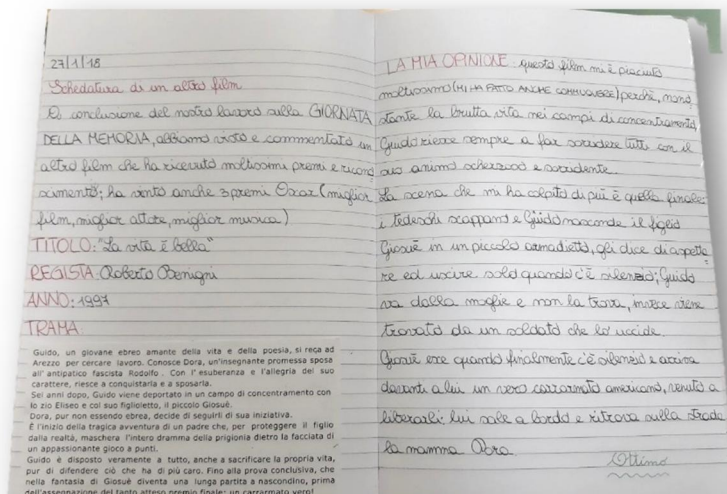 27/1/18
Schedatura di un altro film
A conclusione del nostro lavoro sulla GIORNATA
DELLA MEMORIA, abbiamo visto e commentato un
altro film che ha ricevuto moltissimi premi e ricono
scimenti; ha vinto anche 3 premi Oscar (miglior
film, miglior attore, miglior musica)
TITOLO: "La vita è bella"
REGISTA: Roberto Benigni
ANNO: 1997
TRAMA:
Guido, un giovane ebreo amante della vita e della poesia, si reca ad
Arezzo per cercare lavoro. Conosce Dora, un'insegnante promessa sposa
all' antipatico fascista Rodolfo . Con l' esuberanza e l'allegria del suo
carattere, riesce a conquistarla e a sposarla.
Sei anni dopo, Guido viene deportato in un campo di concentramento con
lo zio Eliseo e col suo figlioletto, il piccolo Giosuè.
Dora, pur non essendo ebrea, decide di seguirli di sua iniziativa.
È l'inizio della tragica avventura di un padre che, per proteggere il figlio
dalla realtà, maschera l'intero dramma della prigionia dietro la facciata di
un appassionante gioco a punti.
Guido è disposto veramente a tutto, anche a sacrificare la propria vita,
pur di difendere ciò che ha di più caro. Fino alla prova conclusiva, che
nella fantasia di Giosuè diventa una lunga partita a nascondino, prima
dell'assegnazione del tanto atteso premio finale: un carrarmato vero!
LA MIA OPINIONE: questo film mi è piaciuto
moltissimo (MI HA FATTO ANCHE COMMUOVERE) perché, nono
stante la brutta vita nei campi di concentramento,
Guido riesce sempre a far sorridere tutti con il
suo animo scherzoso e sorridente.
La scena che mi ha colpito di più è quella finale:
i tedeschi scappano e Guido nasconde il figlio
Giosuè in un piccolo armadietto, gli dice di aspetta
re ed uscire solo quando c'è silenzio; Guido
va dalla moglie e non la trova, invece viene
trovato da un soldato che lo uccide.
Giosuè esce quando finalmente c'è silenzio e arriva
davanti a lui un vero carrarmato americano, venuto a
liberarli: lui sale a bordo e ritrova sulla strada
la mamma Dora
Ottimo